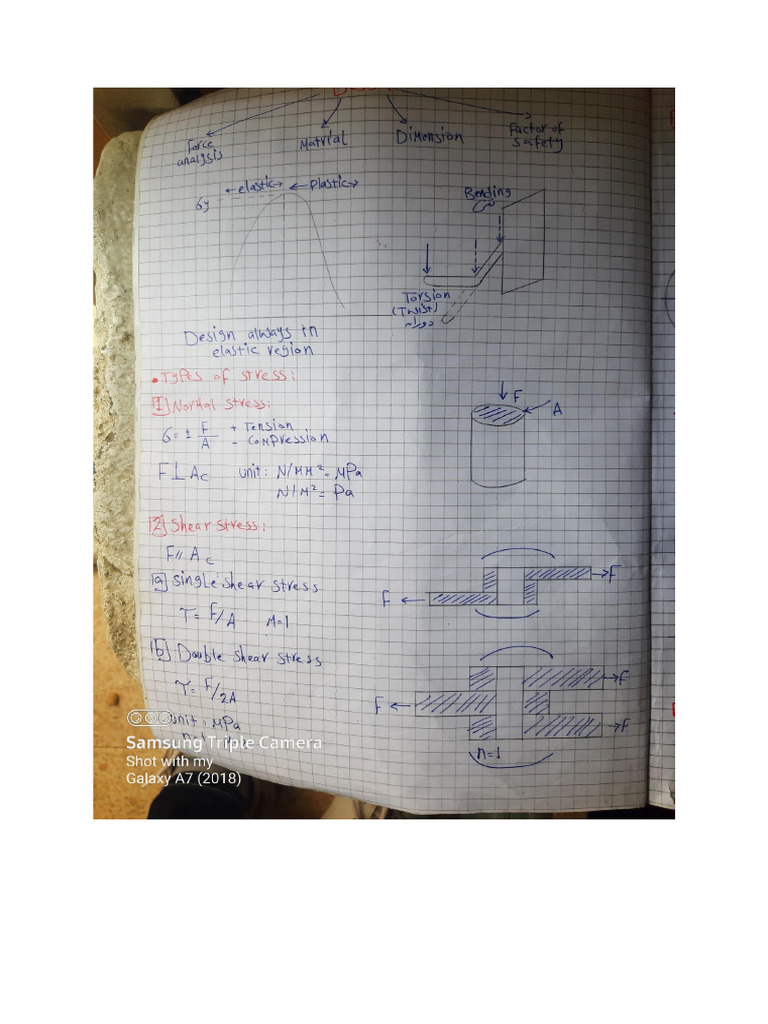 Force
analysis
Matrial
Dimension
Factor of
safety
elastic
Plastic
σy
Bending
Torsion
(Twist)
دوران
Design always in
elastic region
• Types of stress:
1 Normal stress:
σ = ± F/A + Tension
- compression
F
A
F ⊥ Ac unit: N/mm² = MPa
N/m² = Pa
2 Shear stress:
F // Ac
a Single shear stress
F
F
τ = F/A n=1
b Double shear stress
F
F
F
τ = F/2A
unit: MPa
n=1
Samsung Triple Camera
Shot with my
Galaxy A7 (2018)